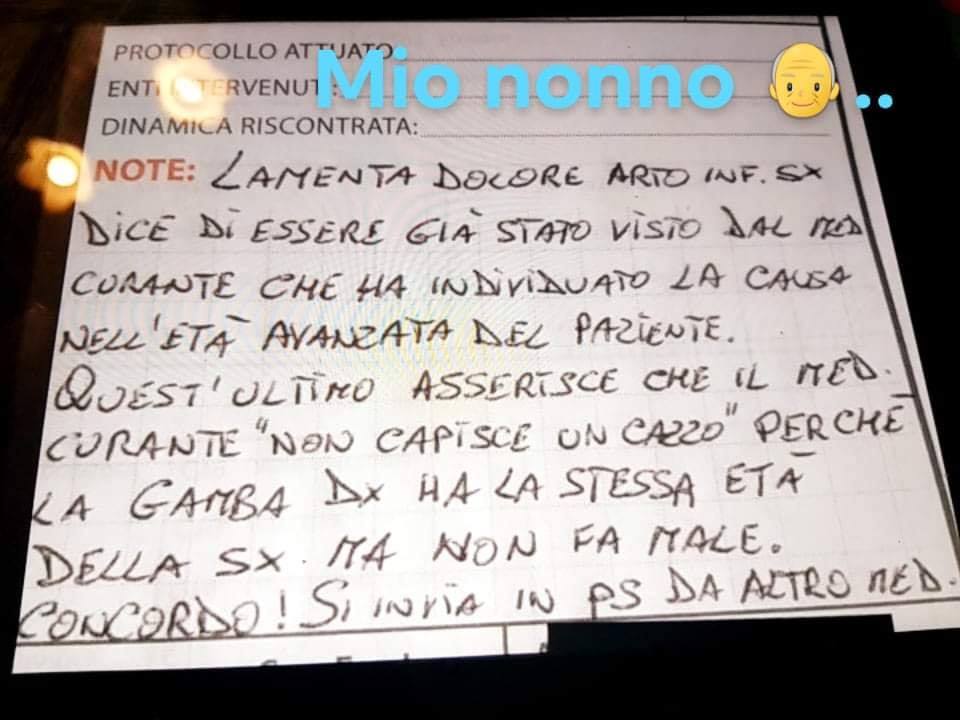 PROTOCOLLO ATTUATO:
ENTI INTERVENUTI:
Mio nonno 👴..
DINAMICA RISCONTRATA:
NOTE: LAMENTA DOLORE ARTO INF. SX
DICE DI ESSERE GIÀ STATO VISTO DAL MED
CURANTE CHE HA INDIVIDUATO LA CAUSA
NELL'ETÀ AVANZATA DEL PAZIENTE.
QUEST'ULTIMO ASSERISCE CHE IL MED.
CURANTE "NON CAPISCE UN CAZZO" PERCHÈ
LA GAMBA DX HA LA STESSA ETÀ
DELLA SX. MA NON FA MALE.
CONCORDO! SI INVIA IN PS DA ALTRO MED.